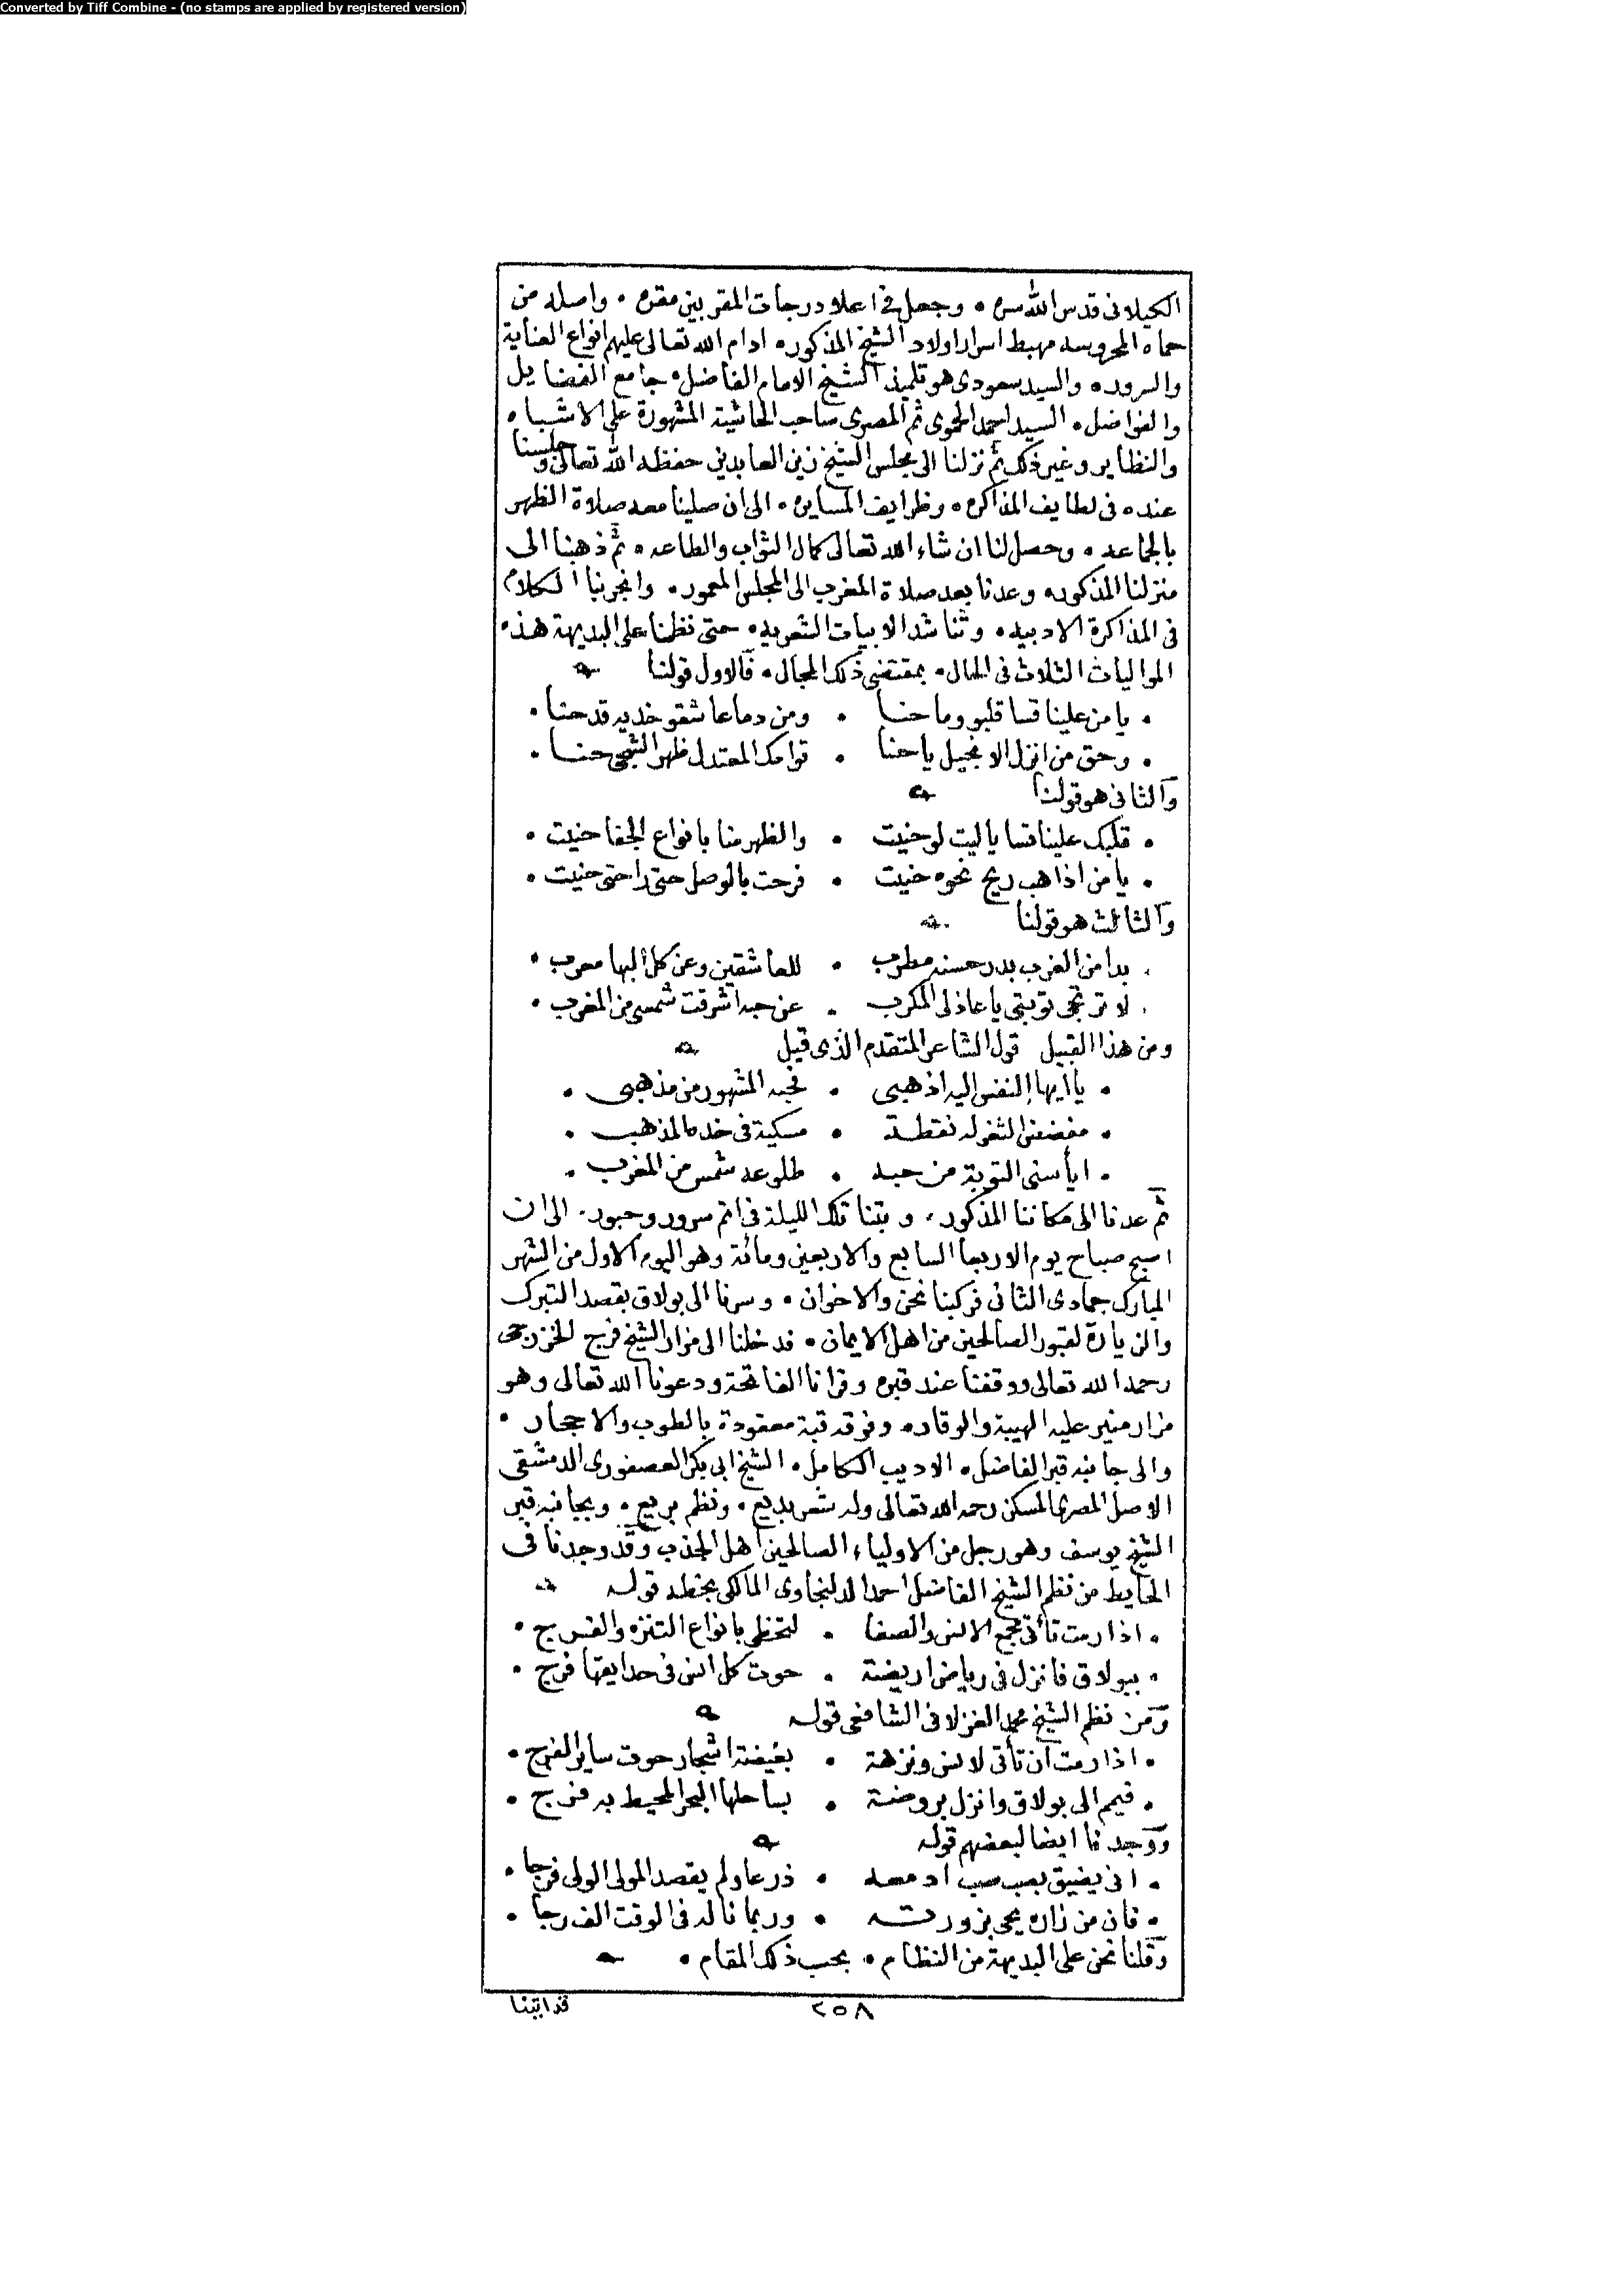 Converted by Tiff Combine - (no stamps are applied by registered version)
الكيلانى قدس الله سره • وجعل فى اعلا درجات المقربين مقره • واصله من
حماه المحروسه مهبط اسرار اولاد الشيخ المذكور • ادام الله تعالى عليهم انواع العناية
والسرور • والسيد سعودى هو تلميذ الشيخ الامام الفاضل • جامع الفضايل
والفواضل • السيد احمد الحموى ثم المصرى صاحب الحاشية المشهورة على الاشباه
والنظاير وغير ذلك ثم نزلنا الى مجلس الشيخ زين العابدين حفظه الله تعالى وجلسنا
عنده فى لطايف المذاكره • وظرايف المسايره • الى ان صلينا معه صلاة الظهر
بالجماعه • وحصل لنا ان شاء الله تعالى كمال الثواب والطاعه • ثم ذهبنا الى
منزلنا المذكور • وعدنا بعد صلاة المغرب الى المجلس المعمور • وانجر بنا الكلام
فى المذاكرة الادبيه • وتناشد الابيات الشعريه • حتى نظمنا على البديهة هذه
المواليات الثلاث فى الحال • بمقتضى ذلك المجال • فالاول قولنا
• يا من علينا قسا قلبو وما حنا • ومن دما عاشقو خديه قد حنا •
• وحق من انزل الانجيل ياحنا • قوامك المعتدل ظهر الشجى حنا •
والثانى هو قولنا
• قلبك علينا قسا ياليت لو حنيت • والظهر منا بانواع الجفا حنيت •
• يا من اذا هب ريح نحوه حنيت • فرحت بالوصل حتى راحتى حنيت •
والثالث هو قولنا
• بدا من الغرب بدر حسنه مطرب • للعاشقين وعن كل البها معرب •
• لا ترتجى توبتى يا عاذلى المكرب • عن حبه اشرقت شمسى من المغرب •
ومن هذا القبيل قول الشاعر المتقدم الذى قيل
• يا ايها النفس اليه اذهبى • فحبه المشهور من مذهبى •
• مفضض الثغر له نقطة • مسكية فى خده المذهب •
• ايأسنى التوبة من حبه • طلوعه شمس من المغرب •
ثم عدنا الى مكاننا المذكور • وبتنا تلك الليلة فى اتم سرور وحبور • الى ان
اصبح صباح يوم الاربعا السابع والاربعين ومائة وهو اليوم الاول من الشهر
المبارك جمادى الثانى فركبنا نحن والاخوان • وسرنا الى بولاق بقصد التبرك
والزيارة لقبور الصالحين من اهل الايمان • فدخلنا الى مزار الشيخ فرج الخزرجى
رحمه الله تعالى ووقفنا عند قبره وقرانا الفاتحة ودعونا الله تعالى وهو
مزار منير عليه الهيبة والوقار • وفوقه قبة معقودة بالطوب والاحجار •
والى جانبه قبر الفاضل • الاديب الكامل • الشيخ ابى بكر العصفورى الدمشقى
الاصل المصرى المسكن رحمه الله تعالى وله شعر بديع • ونظم مريع • وبجانبه قبر
الشيخ يوسف وهو رجل من الاولياء الصالحين اهل الجذب وقد وجدنا فى
الحايط من نظم الشيخ الفاضل احمد الدلنجاوى المالكى بخطه قوله
• اذا رمت تأتى مجمع الانس والصفا • لتحظى بانواع التنزه والفرج •
• ببولاق فانزل فى رياض اريضة • حوت كل انس فى حدايقها فرج •
ومن نظم الشيخ محمد الغزلانى الشافعى قوله
• اذا رمت ان تأتى لانس ونزهة • بغيضة اشجار حوت ساير الفرج •
• فيمم الى بولاق وانزل بروضة • بساحلها البحر المحيط به فرج •
ووجدنا ايضا لبعضهم قوله
• انى يضيق بصب صب ادمعه • ذرعا ولم يقصد المولى الولى فرجا •
• فان من زاره يحى بزورته • وربما نال فى الوقت الف رجا •
وقلنا نحن على البديهة من النظام • بحسب ذلك المقام •
٢٥٨
قد اتينا